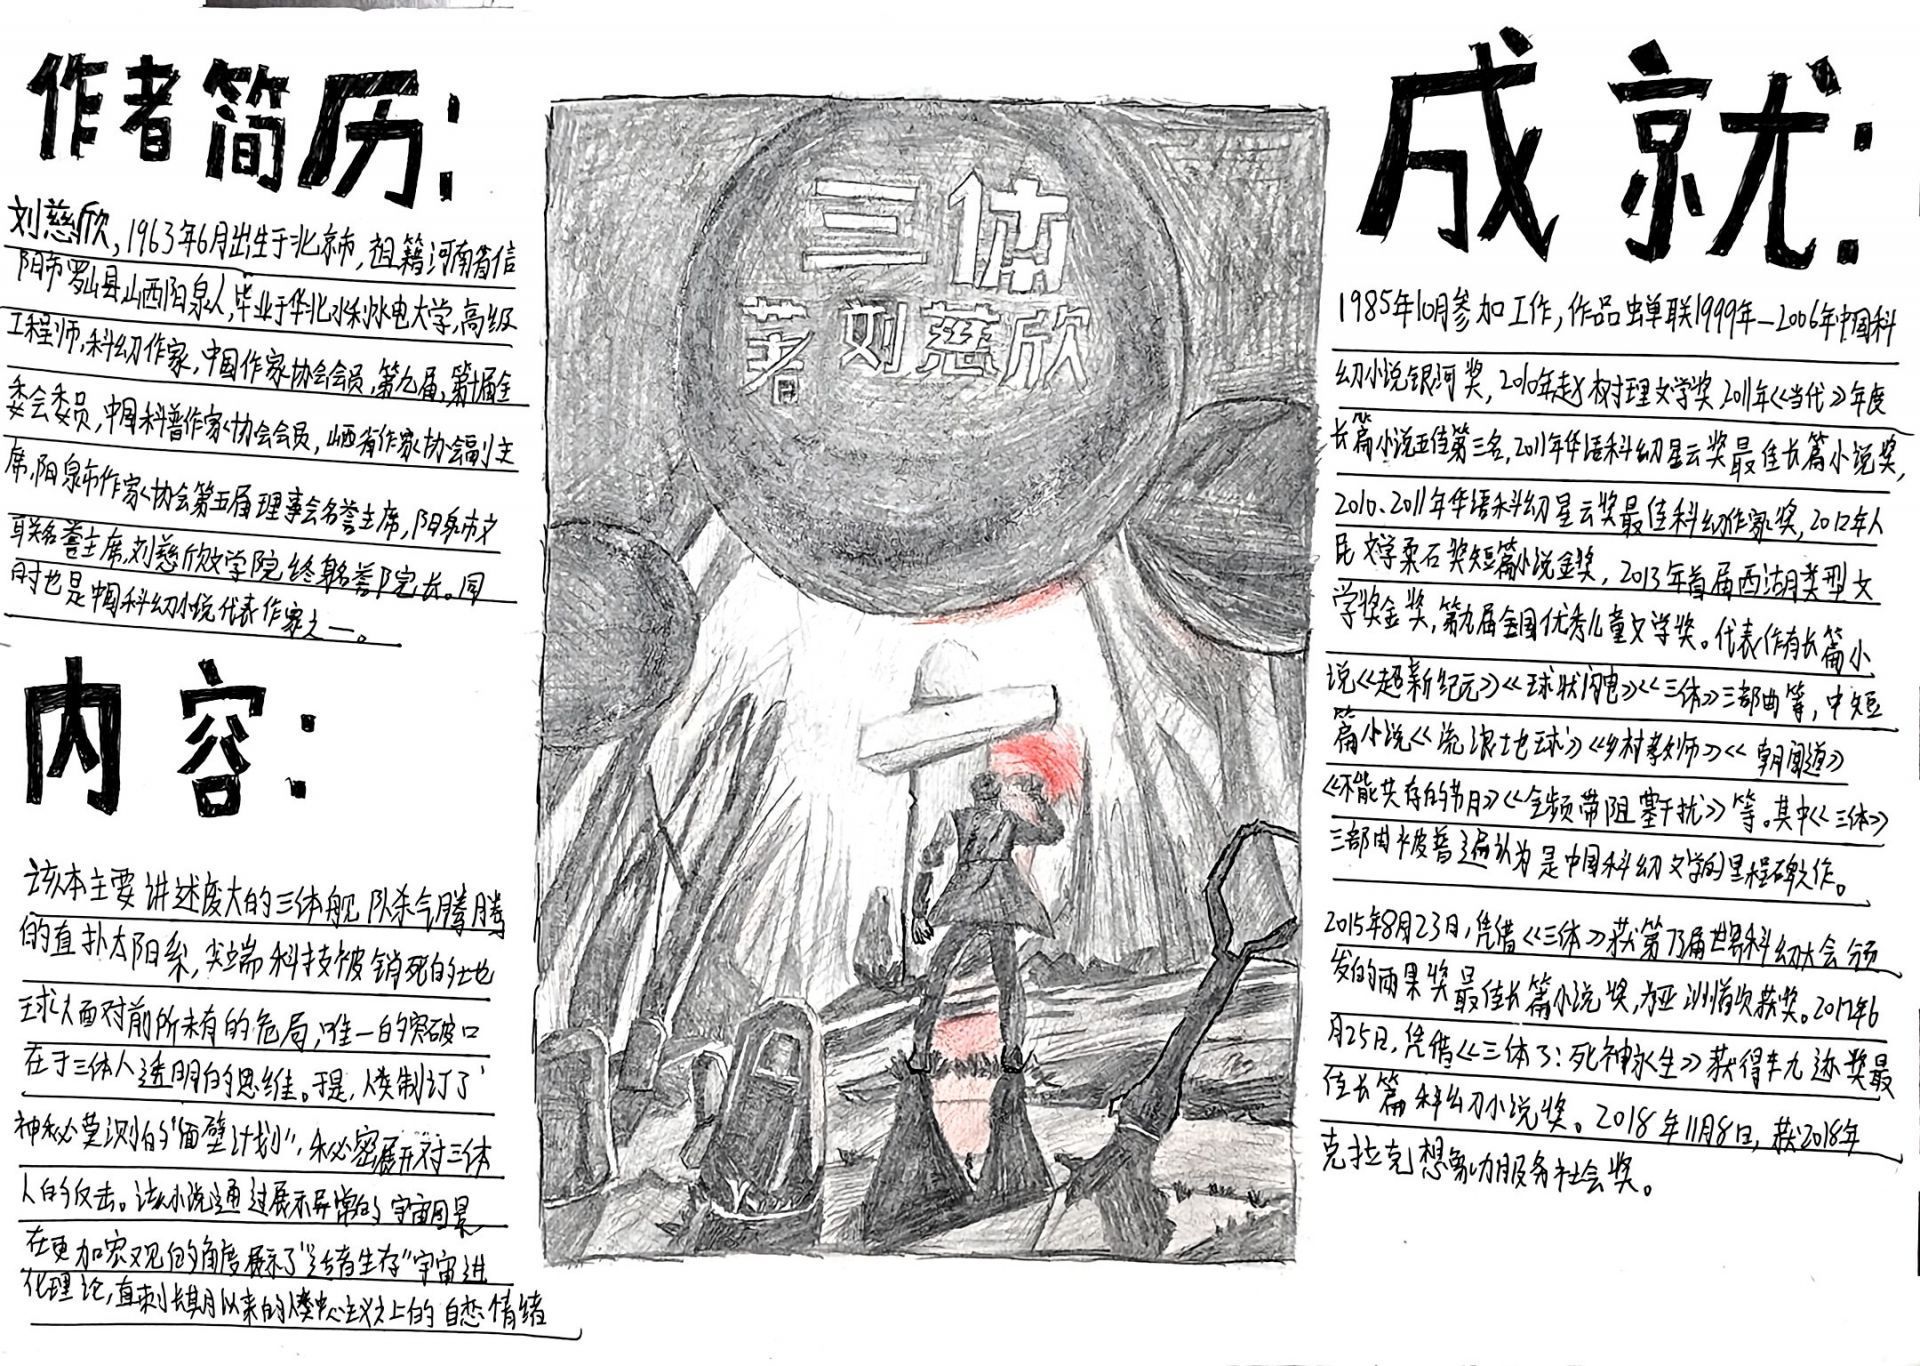 作者简历:
刘慈欣,1963年6月出生于北京市,祖籍河南省信
阳市罗山县山西阳泉人,毕业于华北水利水电大学,高级
工程师,科幻作家,中国作家协会会员,第九届,第十届全
委会委员,中国科普作家协会会员,山西省作家协会副主
席,阳泉市作家协会第五届理事会名誉主席,阳泉市文
联名誉主席,刘慈欣文学院终身名誉院长。同
时也是中国科幻小说代表作家之一。
内容:
该本主要讲述庞大的三体舰队杀气腾腾
的直扑太阳系,尖端科技被锁死的地
球人面对前所未有的危局,唯一的突破口
在于三体人透明的思维。于是,人类制订了
神秘莫测的“面壁计划”,秘密展开对三体
人的反击。该小说通过展示异常的宇宙图景
在更加宏观的角度展示了“适者生存”宇宙进
化理论,直刺长期以来的人类中心主义之上的自恋情绪
三体
著 刘慈欣
成就:
1985年10月参加工作,作品蝉联1999年—2006年中国科
幻小说银河奖,2010年赵树理文学奖,2011年《当代》年度
长篇小说五佳第三名,2011年华语科幻星云奖最佳长篇小说奖,
2010、2011年华语科幻星云奖最佳科幻作家奖,2012年人
民文学柔石奖短篇小说金奖,2013年首届西湖类型文
学奖金奖,第九届全国优秀儿童文学奖。代表作有长篇小
说《超新纪元》《球状闪电》《三体》三部曲等,中短
篇小说《流浪地球》《乡村教师》《朝闻道》
《不能共存的节日》《全频带阻塞干扰》等。其中《三体》
三部曲被普遍认为是中国科幻文学的里程碑之作。
2015年8月23日,凭借《三体》获第73届世界科幻大会颁
发的雨果奖最佳长篇小说奖,为亚洲首次获奖。2017年6
月25日,凭借《三体3:死神永生》获得轨迹奖最
佳长篇科幻小说奖。2018年11月8日,获2018年
克拉克想象力服务社会奖。